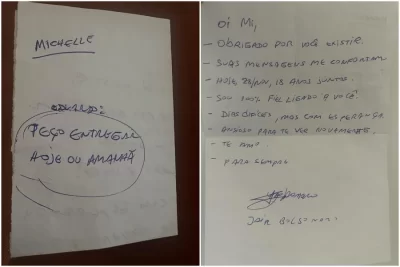 MICHELLE
PEÇO ENTREGAR
HOJE OU AMANHÃ
Oi Mi,
- OBRIGADO POR VOCÊ EXISTIR.
- SUAS MENSAGENS ME CONFORTAM
- HOJE, 28/NOV, 18 ANOS JUNTOS.
- SOU 100% FELIGADO A VOCÊ
- DIAS DIFÍCEIS, MAS COM ESPERANÇA
- ANSIOSO PARA TE VER NOVAMENTE.
- TE AMO
- PARA SEMPRE
JAIR BOLSONARO